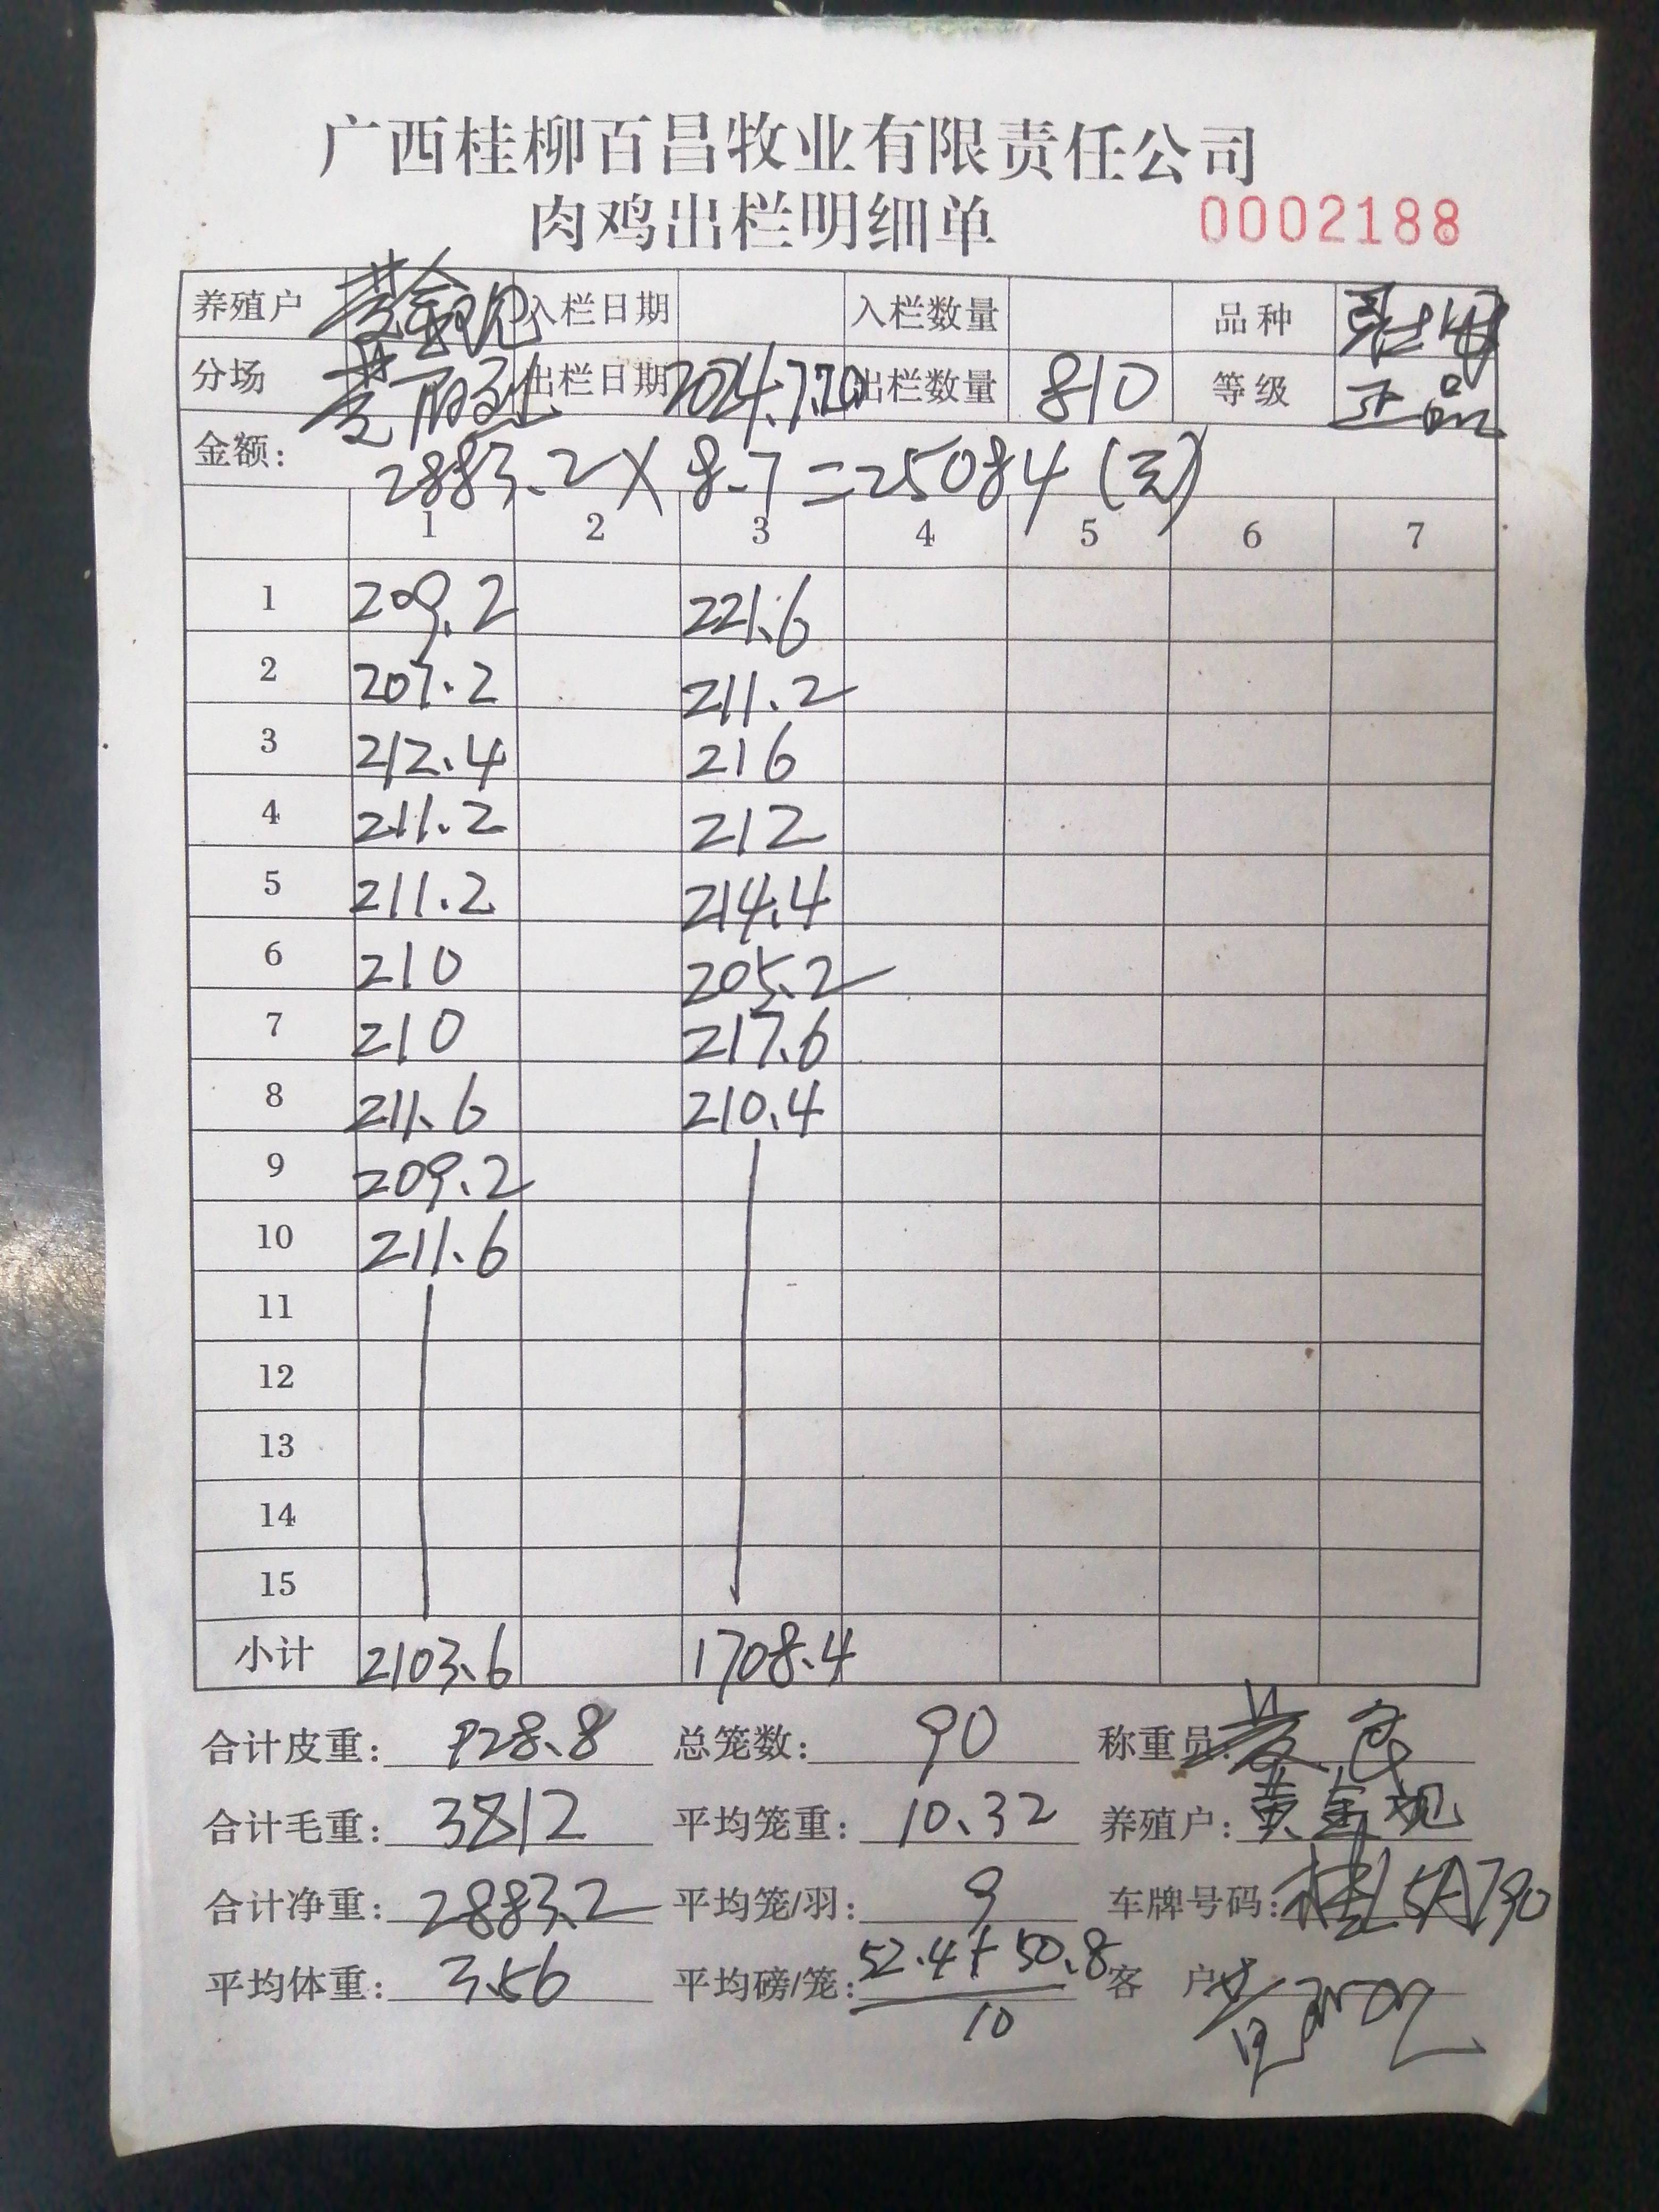 广西桂柳百昌牧业有限责任公司
肉鸡出栏明细单 0002188
养殖户 黄金现 入栏日期 入栏数量 品种
分场 出栏日期 2024.7.20 出栏数量 810 等级 正品
金额: 2883.2×8.7=25084(元)
1 2 3 4 5 6 7
1 209.2 221.6
2 207.2 211.2
3 212.4 216
4 211.2 212
5 211.2 214.4
6 210 205.2
7 210 217.6
8 211.6 210.4
9 209.2
10 211.6
11
12
13
14
15
小计 2103.6 1708.4
合计皮重: 928.8 总笼数: 90 称重员:
合计毛重: 3812 平均笼重: 10.32 养殖户: 黄金现
合计净重: 2883.2 平均笼/羽: 9 车牌号码:
平均体重: 3.56 平均磅/笼: 52.4+50.8 客 户
10